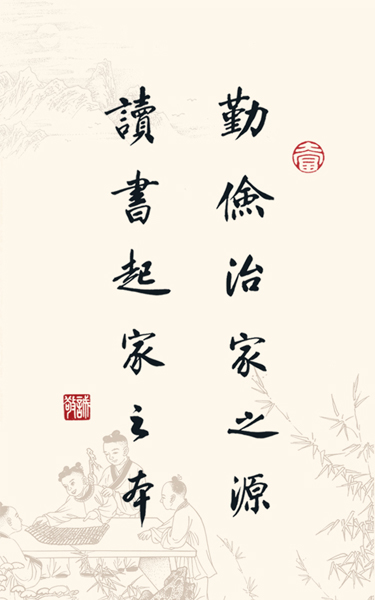 勤儉治家之源
讀書起家之本